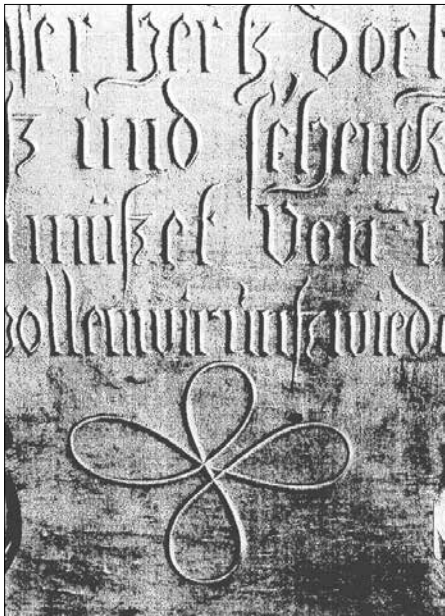 ser herß doch
und schenck
müßet von
ollen wir unß wied